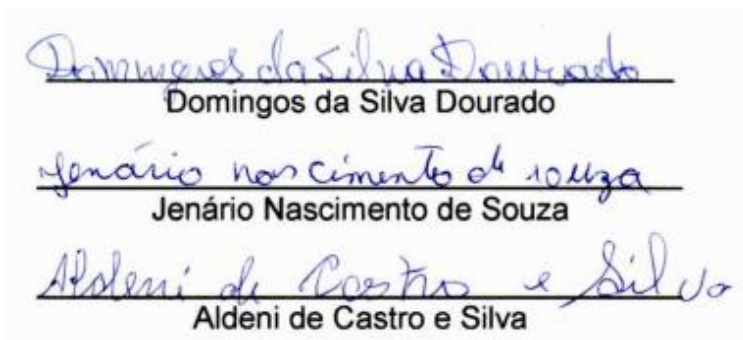 Domingos da Silva Dourado
Domingos da Silva Dourado
Jenário nascimento de souza
Jenário Nascimento de Souza
Aldeni de Castro e Silva
Aldeni de Castro e Silva